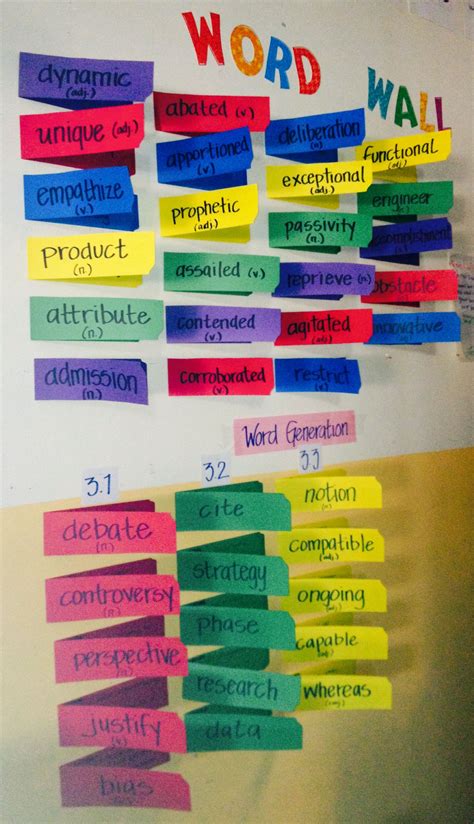 WORD WALL
dynamic
(adj.)
unique (adj.)
empathize
(v.)
product
(n.)
attribute
(n.)
admission
(n.)
abated (v.)
apportioned
(v.)
prophetic
(adj.)
assailed (v.)
contended
(v.)
corroborated
(v.)
deliberation
(n.)
exceptional
(adj.)
passivity
(n.)
reprieve (n.)
agitated
(adj.)
restrict
(v.)
functional
(adj.)
engineer
accomplishment
obstacle
innovative
Word Generation
3.1
debate
(n.)
controversy
(n.)
perspective
(n.)
justify
(v.)
bias
3.2
cite
strategy
phase
research
data
3.3
notion
(n.)
compatible
(adj.)
ongoing
(adj.)
capable
(adj.)
whereas